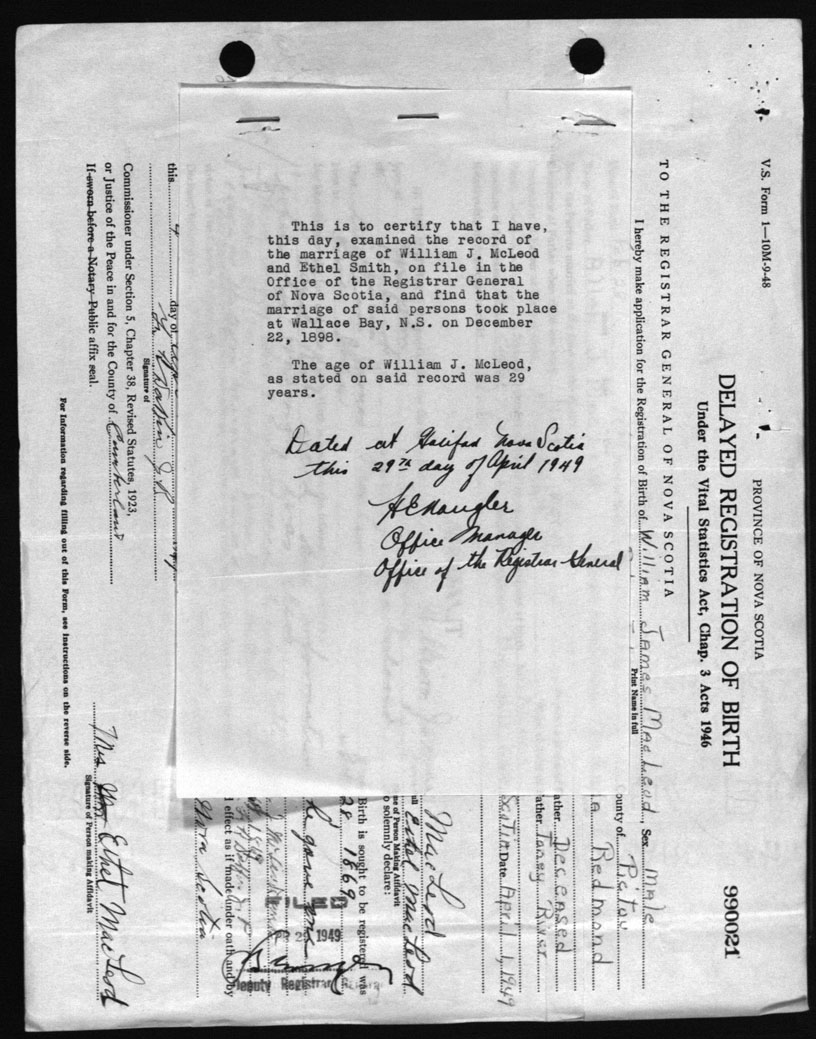 This is to certify that I have,
this day, examined the record of
the marriage of William J. McLeod
and Ethel Smith, on file in the
Office of the Registrar General
of Nova Scotia, and find that the
marriage of said persons took place
at Wallace Bay, N.S. on December
22, 1898.
The age of William J. McLeod,
as stated on said record was 29
years.
Dated at Halifax Nova Scotia
this 29th day of April 1949
Office Manager
Office of the Registrar General
V.S. Form 1—10M-9-48
PROVINCE OF NOVA SCOTIA
DELAYED REGISTRATION OF BIRTH
990021
Under the Vital Statistics Act, Chap. 3 Acts 1946
TO THE REGISTRAR GENERAL OF NOVA SCOTIA
I hereby make application for the Registration of Birth of William James MacLeod, Sex Male
Print Name in full
ounty of Pictou
Redmond
ather Deceased
ather Toney River
Scotia Date April 1, 1949
MacLeod
ull Ethel MacLeod
me of Person Making Affidavit
o solemnly declare:
Birth is sought to be registered was
28 1869
he gave me
FILED
29 1949
l effect as if made under oath and by
Deputy Registrar General
Nova Scotia
this 4 day of
Signature of
Commissioner under Section 5, Chapter 38, Revised Statutes, 1923,
or Justice of the Peace in and for the County of Cumberland
If sworn before a Notary Public affix seal.
Mrs Wm Ethel MacLeod
Signature of Person making Affidavit
For Information regarding filling out of this Form, see Instructions on the reverse side.